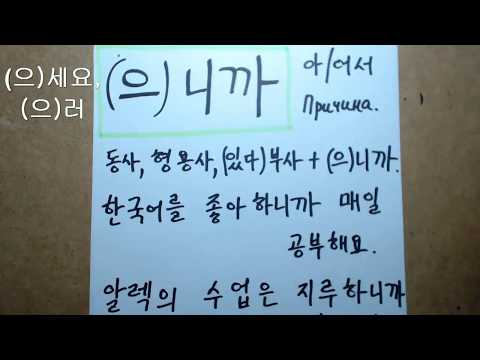 (으)세요,
(으)러
(으)니까
아/어서
Причина.
동사, 형용사, (있다) 부사 + (으)니까.
한국어를 좋아하니까 매일
공부해요.
알렉의 수업은 지루하니까